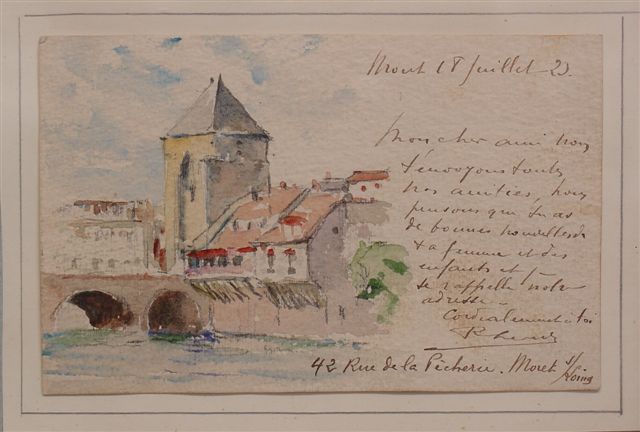 Moret 18 Juillet 23.
Mon cher ami nous
t'envoyons toutes
nos amitiés, nous
pensons que tu as
de bonnes nouvelles de
ta femme et des
enfants et
te rappelle notre
adresse.
Cordialement à toi
42 Rue de la Pêcherie. Moret s/
Loing